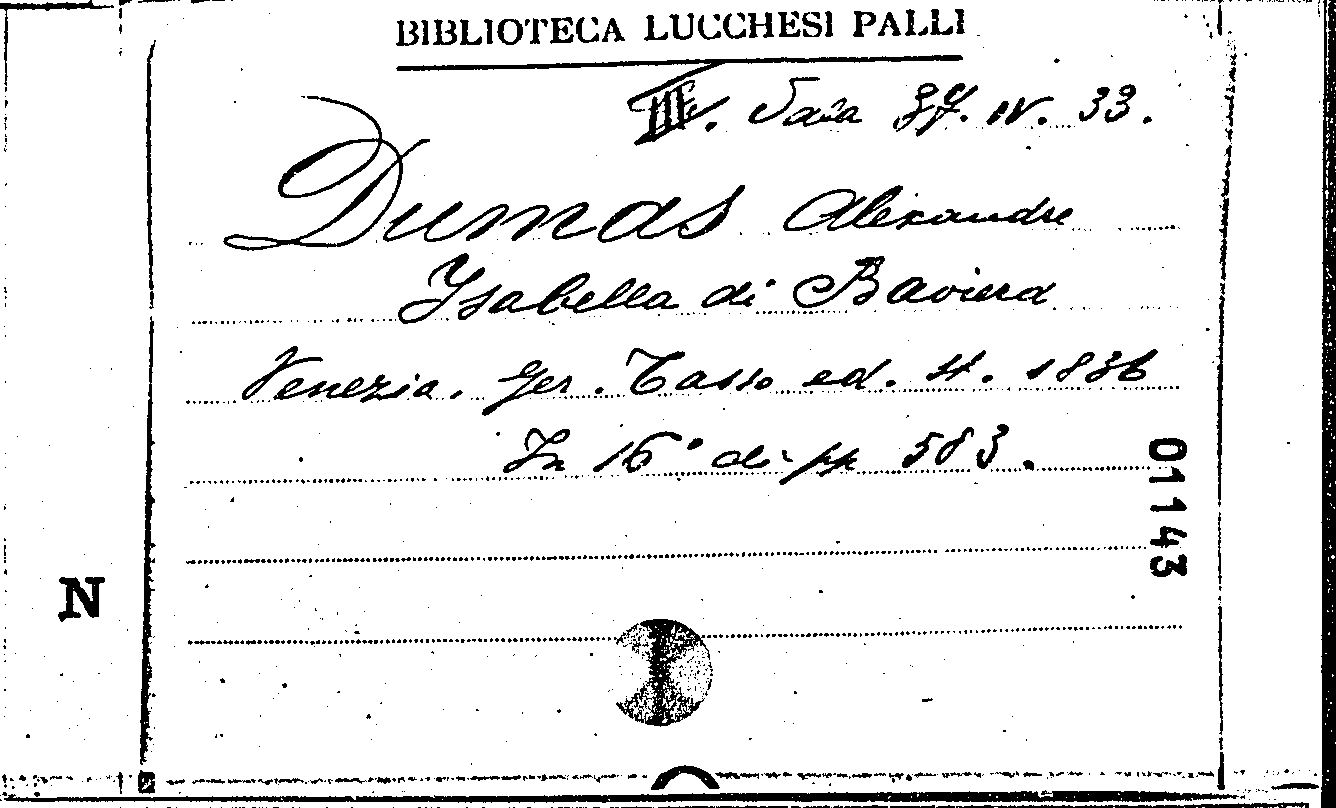 BIBLIOTECA LUCCHESI PALLI
III. Sala 37. IV. 33.
Dumas Alexandre
Isabella di Baviera
Venezia. Ger. Tasso ed. 4. 1836
In 16° di pp 583.
01143
N